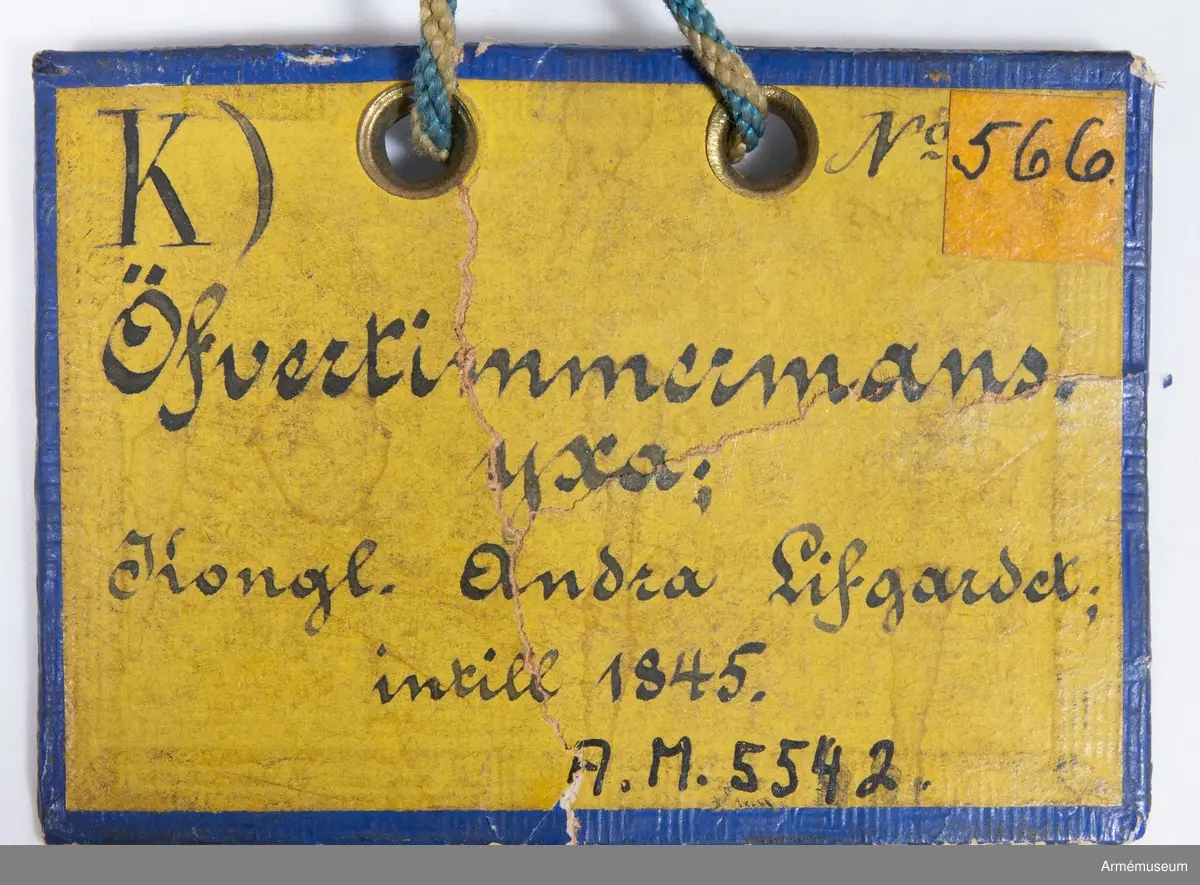 K) No 566.
Öfvertimmermans.
yxa;
Kongl. Andra Lifgardet;
intill 1845.
A.M. 5542.
Armémuseum